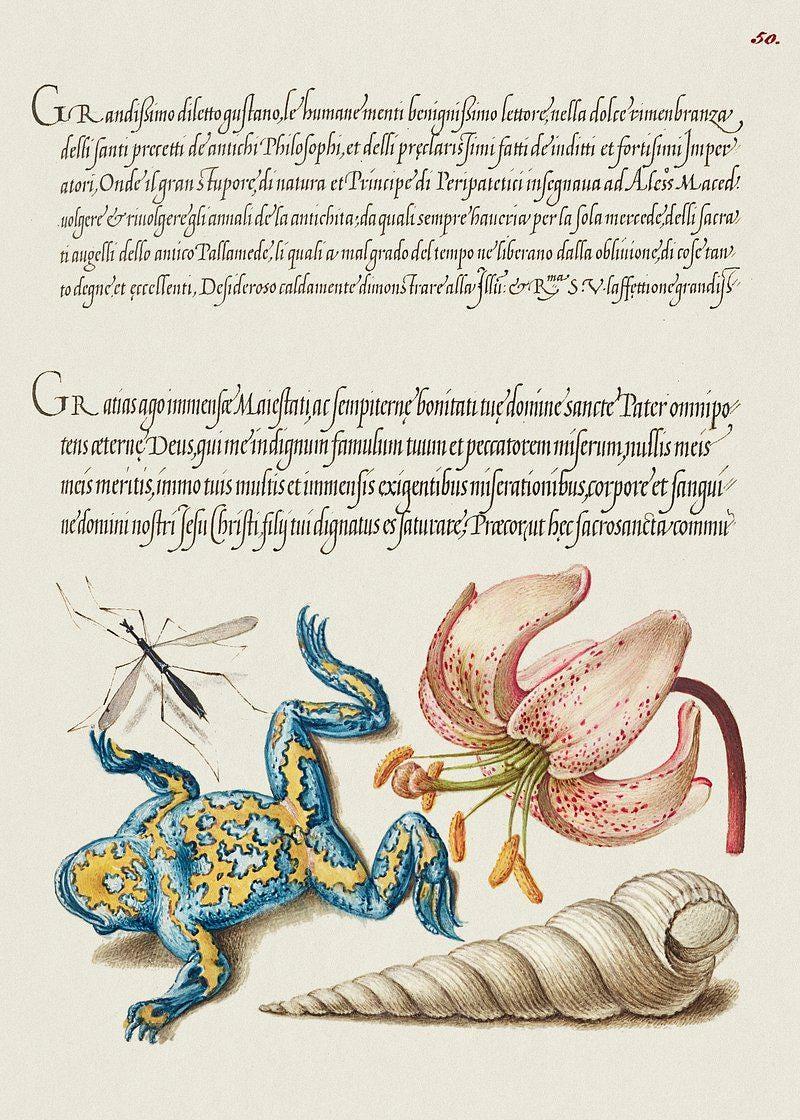 50.
GRandißimo diletto gustano, le humane menti benignißimo lettore, nella dolce rimenbranza,
delli santi precetti de antichi Philosophi, et delli pręclarissimi fatti de inditti et fortisimi Imper-
atori, Onde il gran stupore, di natura et Principe di Peripatetici insegnaua ad Aless Maced:
uolgere & riuolgere gli annali de la antichita, da quali sempre haueria per la sola mercede, delli sacra-
ti augelli dello amico Pallamede, li quali a mal grado del tempo ne liberano dalla obliuione, di cose tan-
to degne et eccellenti, Desideroso caldamente dimonstrare alla Illu: & Rma S. V. l'affettione grandiss-
GRatias ago immensæ Maiestati, ac sempiternę bonitati tuę domine sancte Pater omnipo-
tens æternę Deus, qui me indignum famulum tuum et peccatorem miserum, nullis meis
meis meritis, immo tuis multis et immensis exigentibus miserationibus, corpore et sangui-
ne domini nostri Jesu Christi, filij tui dignatus es saturare, Præcor, ut hęc sacrosancta commu-